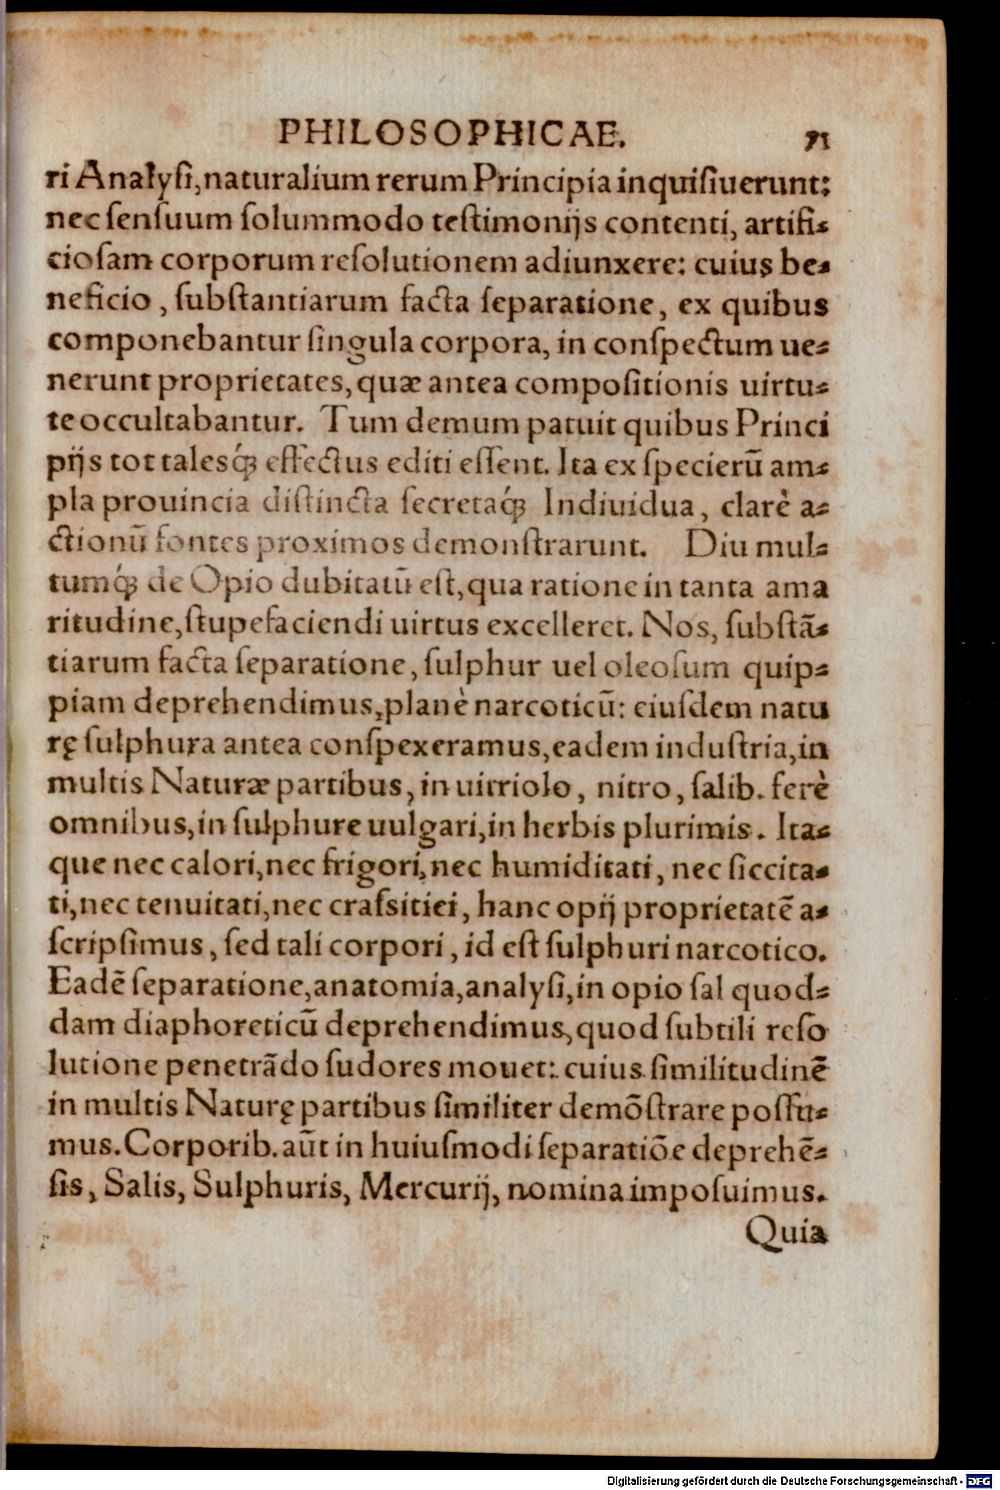 PHILOSOPHICAE. 71
ri Analyſi, naturalium rerum Principia inquiſiuerunt:
nec ſenſuum ſolummodo teſtimonijs contenti, artifi-
cioſam corporum reſolutionem adiunxere: cuius be-
neficio, ſubſtantiarum facta ſeparatione, ex quibus
componebantur ſingula corpora, in conſpectum ue-
nerunt proprietates, quæ antea compoſitionis uirtu-
te occultabantur. Tum demum patuit quibus Princi
pijs tot talesq́ꝫ effectus editi eſſent. Ita ex ſpecierũ am-
pla prouincia diſtincta ſecretaq́ꝫ Indiuidua, clarè a-
ctionũ fontes proximos demonſtrarunt. Diu mul-
tumq́ꝫ de Opio dubitatũ eſt, qua ratione in tanta ama
ritudine, ſtupefaciendi uirtus excelleret. Nos, ſubſtã-
tiarum facta ſeparatione, ſulphur uel oleoſum quip-
piam deprehendimus, planè narcoticũ: eiuſdem natu
rę ſulphura antea conſpexeramus, eadem induſtria, in
multis Naturæ partibus, in uitriolo, nitro, ſalib. ferè
omnibus, in ſulphure uulgari, in herbis plurimis. Ita-
que nec calori, nec frigori, nec humiditati, nec ſiccita-
ti, nec tenuitati, nec craſsitiei, hanc opij proprietatẽ a-
ſcripſimus, ſed tali corpori, id eſt ſulphuri narcotico.
Eadẽ ſeparatione, anatomia, analyſi, in opio ſal quod-
dam diaphoreticũ deprehendimus, quod ſubtili reſo
lutione penetrãdo ſudores mouet: cuius ſimilitudinẽ
in multis Naturę partibus ſimiliter demõſtrare poſſu-
mus. Corporib. aũt in huiuſmodi ſeparatiõe deprehẽ-
ſis, Salis, Sulphuris, Mercurij, nomina impoſuimus.
Quia
Digitalisierung gefördert durch die Deutsche Forschungsgemeinschaft - DFG